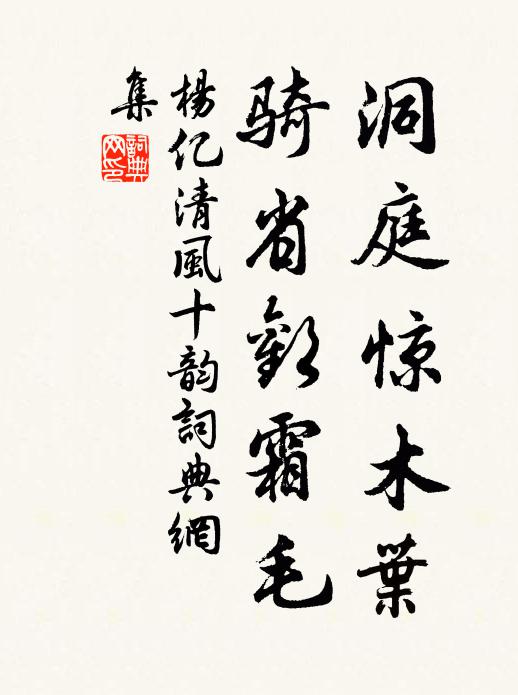 洞庭惊木葉
骑省歎霜毛
楊亿清風十韵詞典網
集
詞典
网印